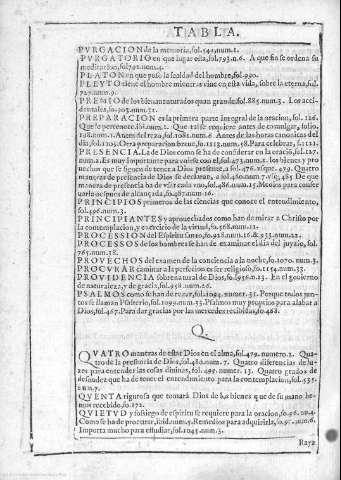 TABLA.
PVRGACION de la memoria, fol.541, num.1.
PVRGATORIO en que lugar esta, fol.793.n.6. A que fin se ordena su
meditacion, fol.792.num.4.
PLATON en que puso la fealdad del hombre, fol.990.
PLEYTO tiene el hombre mientras viue en esta vida, sobre la eterna, fol.
727.num.9.
PREMIO de los bienauenturados quan grande. fol.885.num.3. Los acci-
dentales, fo.903.num.31.
PREPARACION es la primera parte integral de la oracion, fol.126.
Que le pertenece. ibi.num.2. Que tal se requiere antes de comulgar, folio.
num.2. Antes de rezar, fol.1081.num.6. Antes de las horas canonicas del
dia, fol.1105. Otra preparacion breue, fo.1113.num.48. Para celebrar, f.1121.
PRESENCIA. La de Dios como se ha de considerar en la oracio, fol.127.
num.2. Es muy importante para valerse con el, fol.473.num.1. los bienes y pro
uechos que se siguen de tener a Dios presente, a fol.476. vsque.479. Quatro
maneras de presencia de Dios se declaran, a fol.480.num.7. vsq; 485 De que
manera de presencia ha de vsar cada vno, fol.486.num.15. Medios para conser
uarla despues de alcançada, fo.487.num.16.
PRINCIPIOS primeros de las ciencias que conoce el entendimiento,
fol.496.num.3.
PRINCIPIANTES y aprouechados como han de mirar a Christo por
la contemplacion, y exercicio de la virtud, fo.568.num.11.
PROCESSION del Espiritu santo, fo.928.num.16.& 933.num.22.
PROCESSOS de los hombres se han de examinar el dia del juyzio, fol.
765.num.18.
PROVECHOS del examen de la conciencia a la noche, fo.1070. num.3.
PROCVRAR caminar a la perfeccion es ser religioso, fo.1154.num.33.
PROVIDENCIA sobrenatural de Dios, fo.956.n.13. En el gouierno
de naturaleza, y de gracia, fol.958.num.26.
PSALMOS como se han de rezar, fol.1094. numer.31. Porque todos jun-
tos se llaman Psalterio, fol.1099.num.15. Psalmos muy proprios para alabar a
Dios, fol.467. Para dar gracias por las mercedes recibidas, fo.468.
Q.
QVATRO maneras de estar Dios en el alma, fol.479. numero.2. Qua-
tro de la presencia de Dios, fol.480.num.7. Quatro diferencias de lu-
zes para entender las cosas diuinas, fol.499. numer.13. Quatro grados de
desnudez que ha de tener el entendimiento para la contemplacion, fol.535.
num.7.
QVENTA rigurosa que tomará Dios de los bienes que de su mano he-
mos recebido, fo.172.
QVIETVD y sossiego de espiritu se requiere para la oracion, fo.96.nu.4.
Como se ha de procurar, ibid.num.5. Remedios para adquirirla, fo.97.num.6.
Importa mucho para estudiar, fol.1045.num.3.
Raya